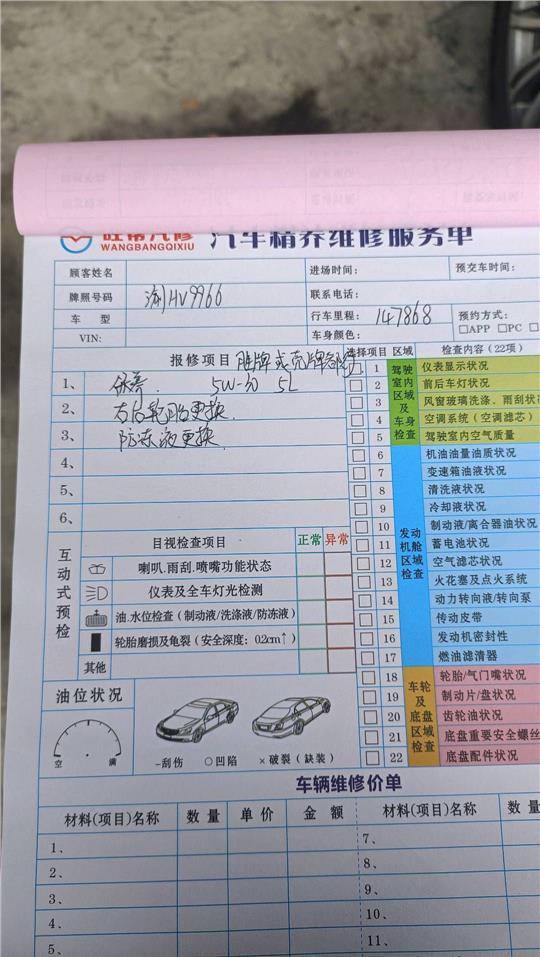 旺帮汽修 汽车精养维修服务单
WANGBANGQIXIU
顾客姓名 进场时间: 预交车时间:
牌照号码 HV9966 联系电话:
车 型 行车里程: 147868 预约方式:
VIN: 车身颜色: □APP □PC
报修项目 胜牌或壳牌 选择项目 区域 检查内容(22项)
1、保养. 5W-30 5L
2、右后轮胎更换.
3、防冻液更换
4、
5、
6、
驾驶室内区域及车身检查
1 仪表显示状况
2 前后车灯状况
3 风窗玻璃洗涤、雨刮状
4 空调系统(空调滤芯)
5 驾驶室内空气质量
发动机舱区域检查
6 机油油量油质状况
7 变速箱油液状况
8 清洗液状况
9 冷却液状况
10 制动液/离合器油状况
11 蓄电池状况
12 空气滤芯状况
13 火花塞及点火系统
14 动力转向液/转向泵
15 传动皮带
16 发动机密封性
17 燃油滤清器
车轮及底盘区域检查
18 轮胎/气门嘴状况
19 制动片/盘状况
20 齿轮油状况
21 底盘重要安全螺丝
22 底盘配件状况
互动式预检
目视检查项目 正常 异常
喇叭.雨刮.喷嘴功能状态
仪表及全车灯光检测
油.水位检查(制动液/洗涤液/防冻液)
轮胎磨损及龟裂(安全深度:0.2cm↑)
其他
油位状况
空 满
-刮伤 ○凹陷 ×破裂(缺装)
车辆维修价单
材料(项目)名称 数 量 单 价 金 额 材料(项目)名称 数 量
1、 7、
2、 8、
3、 9、
4、 10、
5、 11、